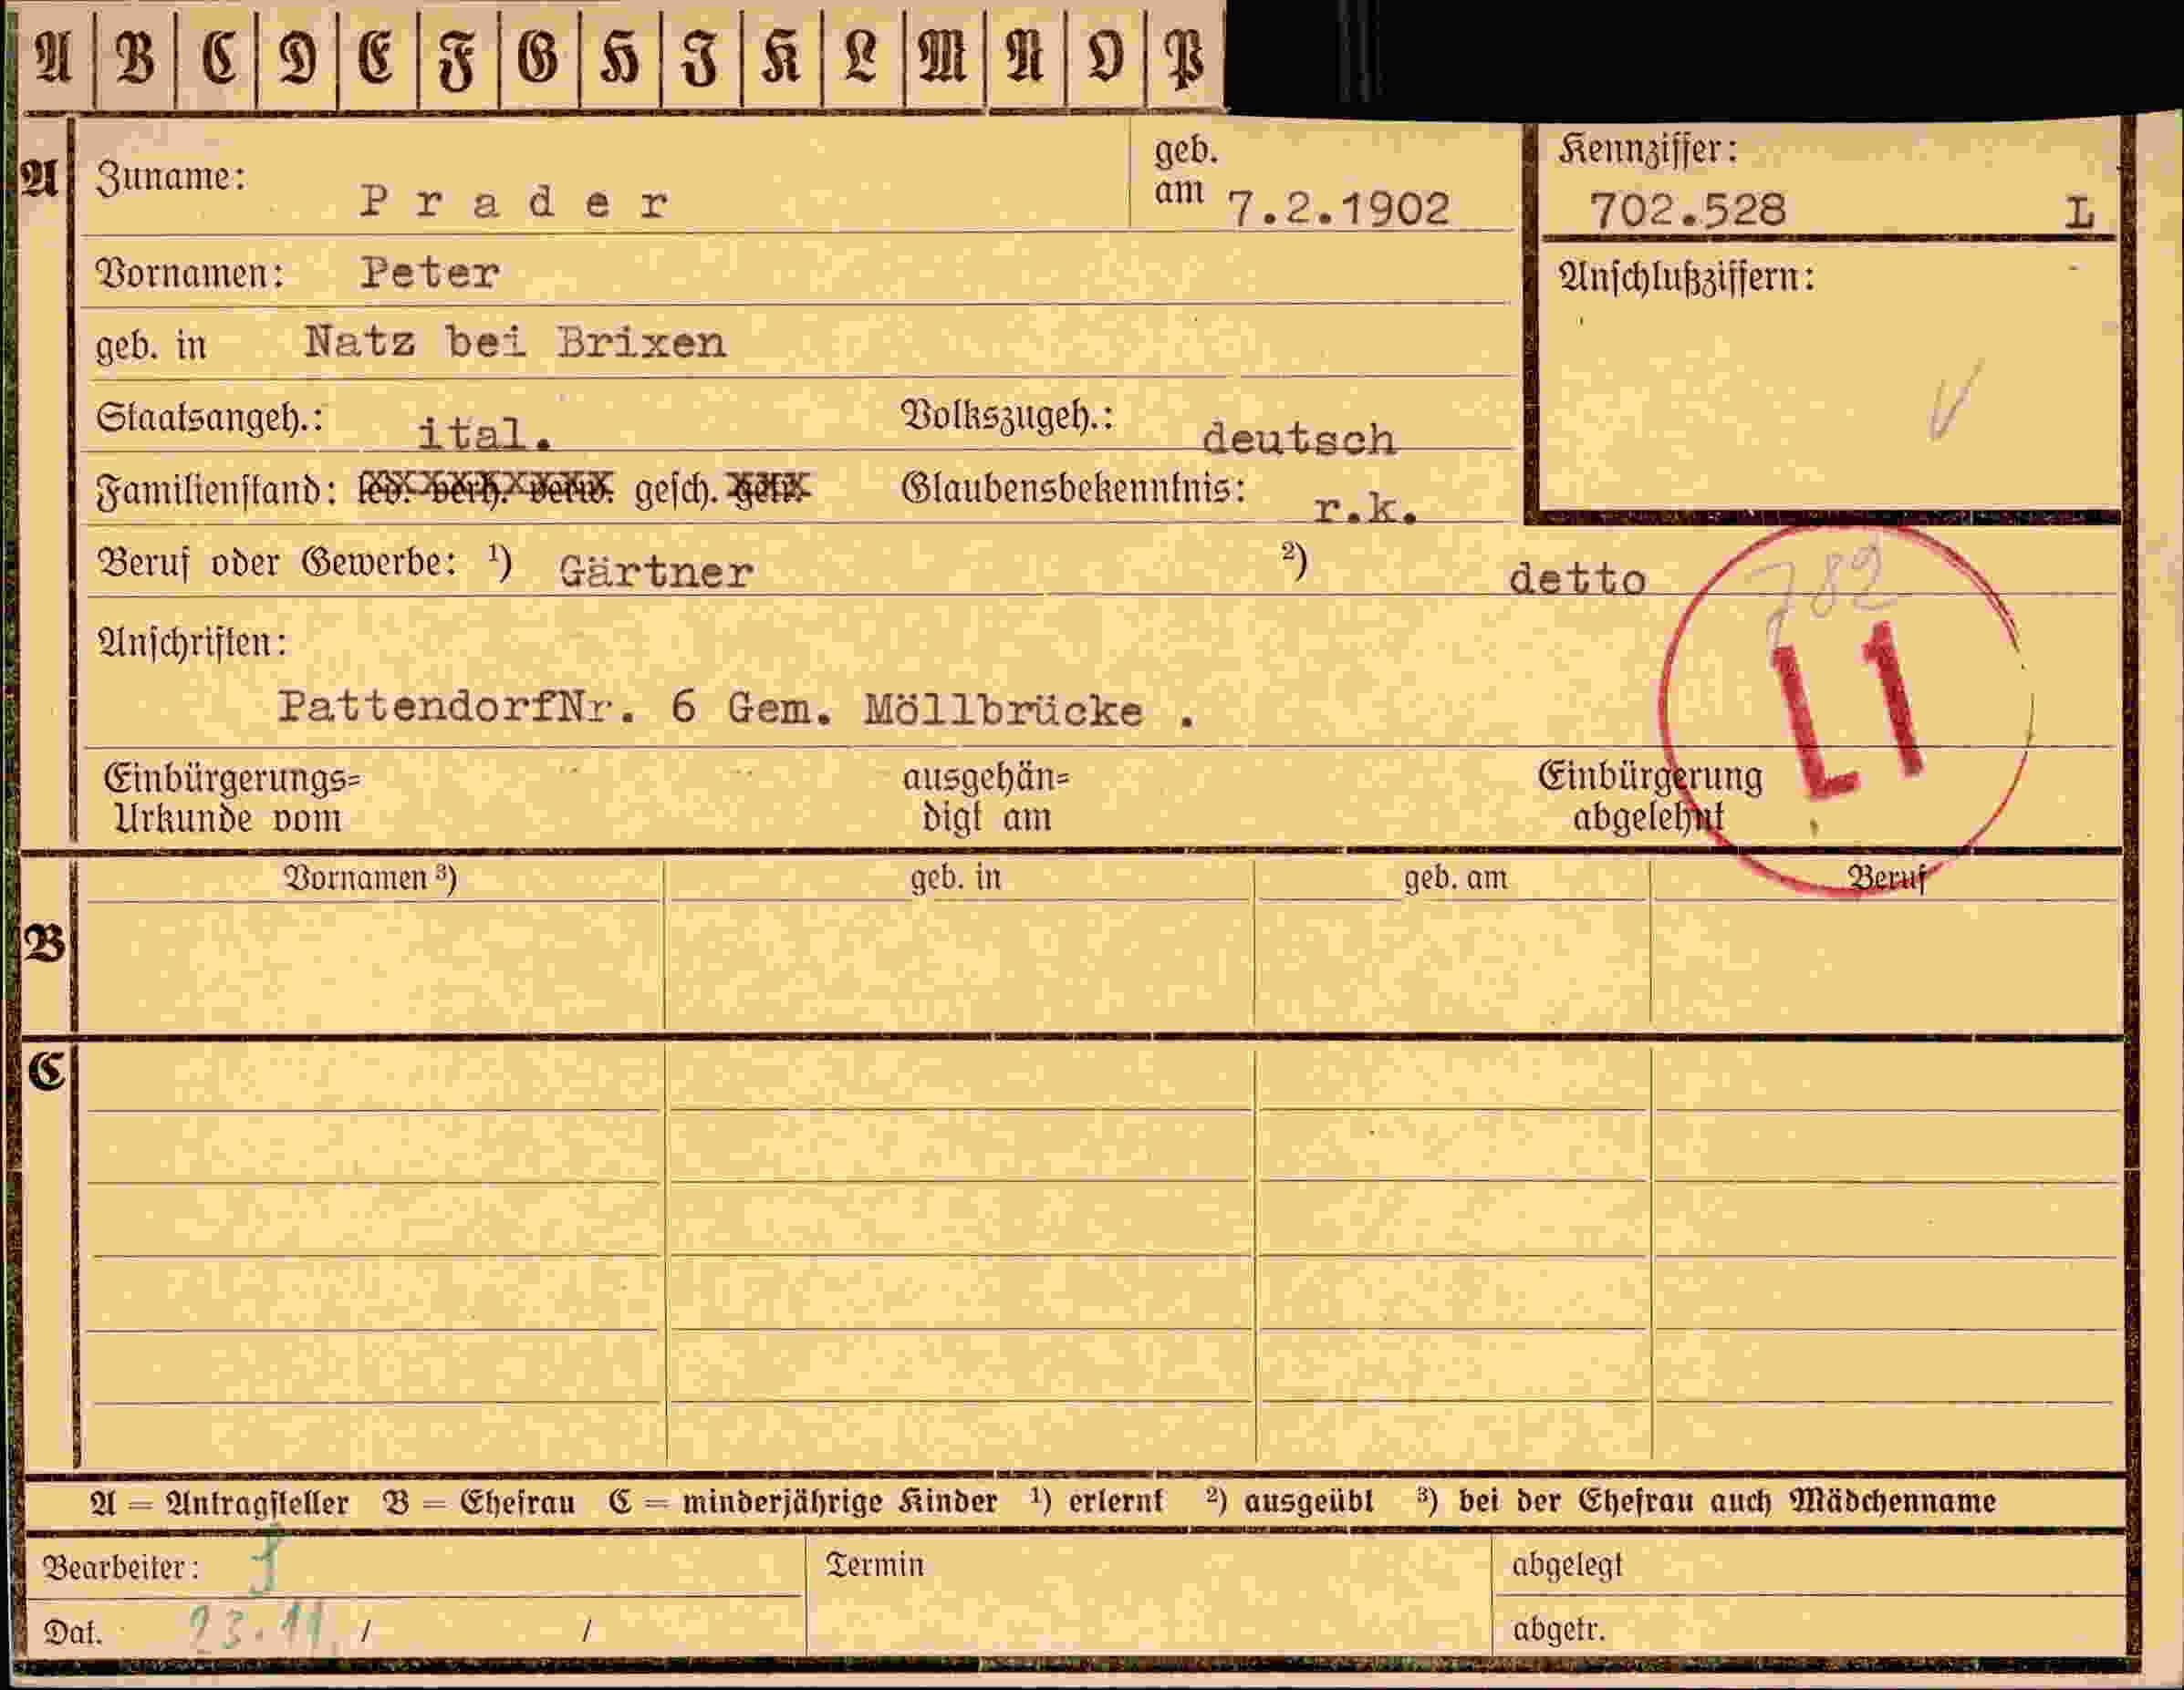 A B C D E F G H I K L M N O P
A Zuname: Prader geb. am 7.2.1902 Kennziffer: 702.528 L
Vornamen: Peter Anschlußziffern:
geb. in Natz bei Brixen
Staatsangeh.: ital. Volkszugeh.: deutsch
Familienstand: led. verh. verw. gesch. getr. Glaubensbekenntnis: r.k.
Beruf oder Gewerbe: 1) Gärtner 2) detto
782
Anschriften:
L1
PattendorfNr. 6 Gem. Möllbrücke .
Einbürgerungs= ausgehän= Einbürgerung
Urkunde vom digt am abgelehnt
Vornamen 3) geb. in geb. am Beruf
B
C
A = Antragsteller B = Ehefrau C = minderjährige Kinder 1) erlernt 2) ausgeübt 3) bei der Ehefrau auch Mädchenname
Bearbeiter: Termin abgelegt
Dat. 23.11. / / abgetr.